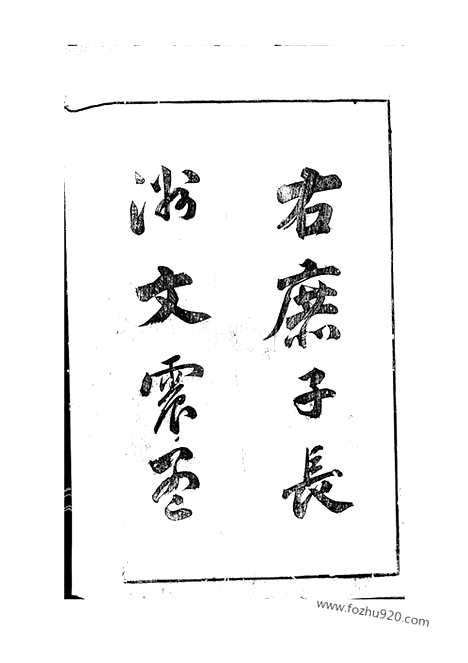 右庶子長
洲文震孟
www.fozhu920.com